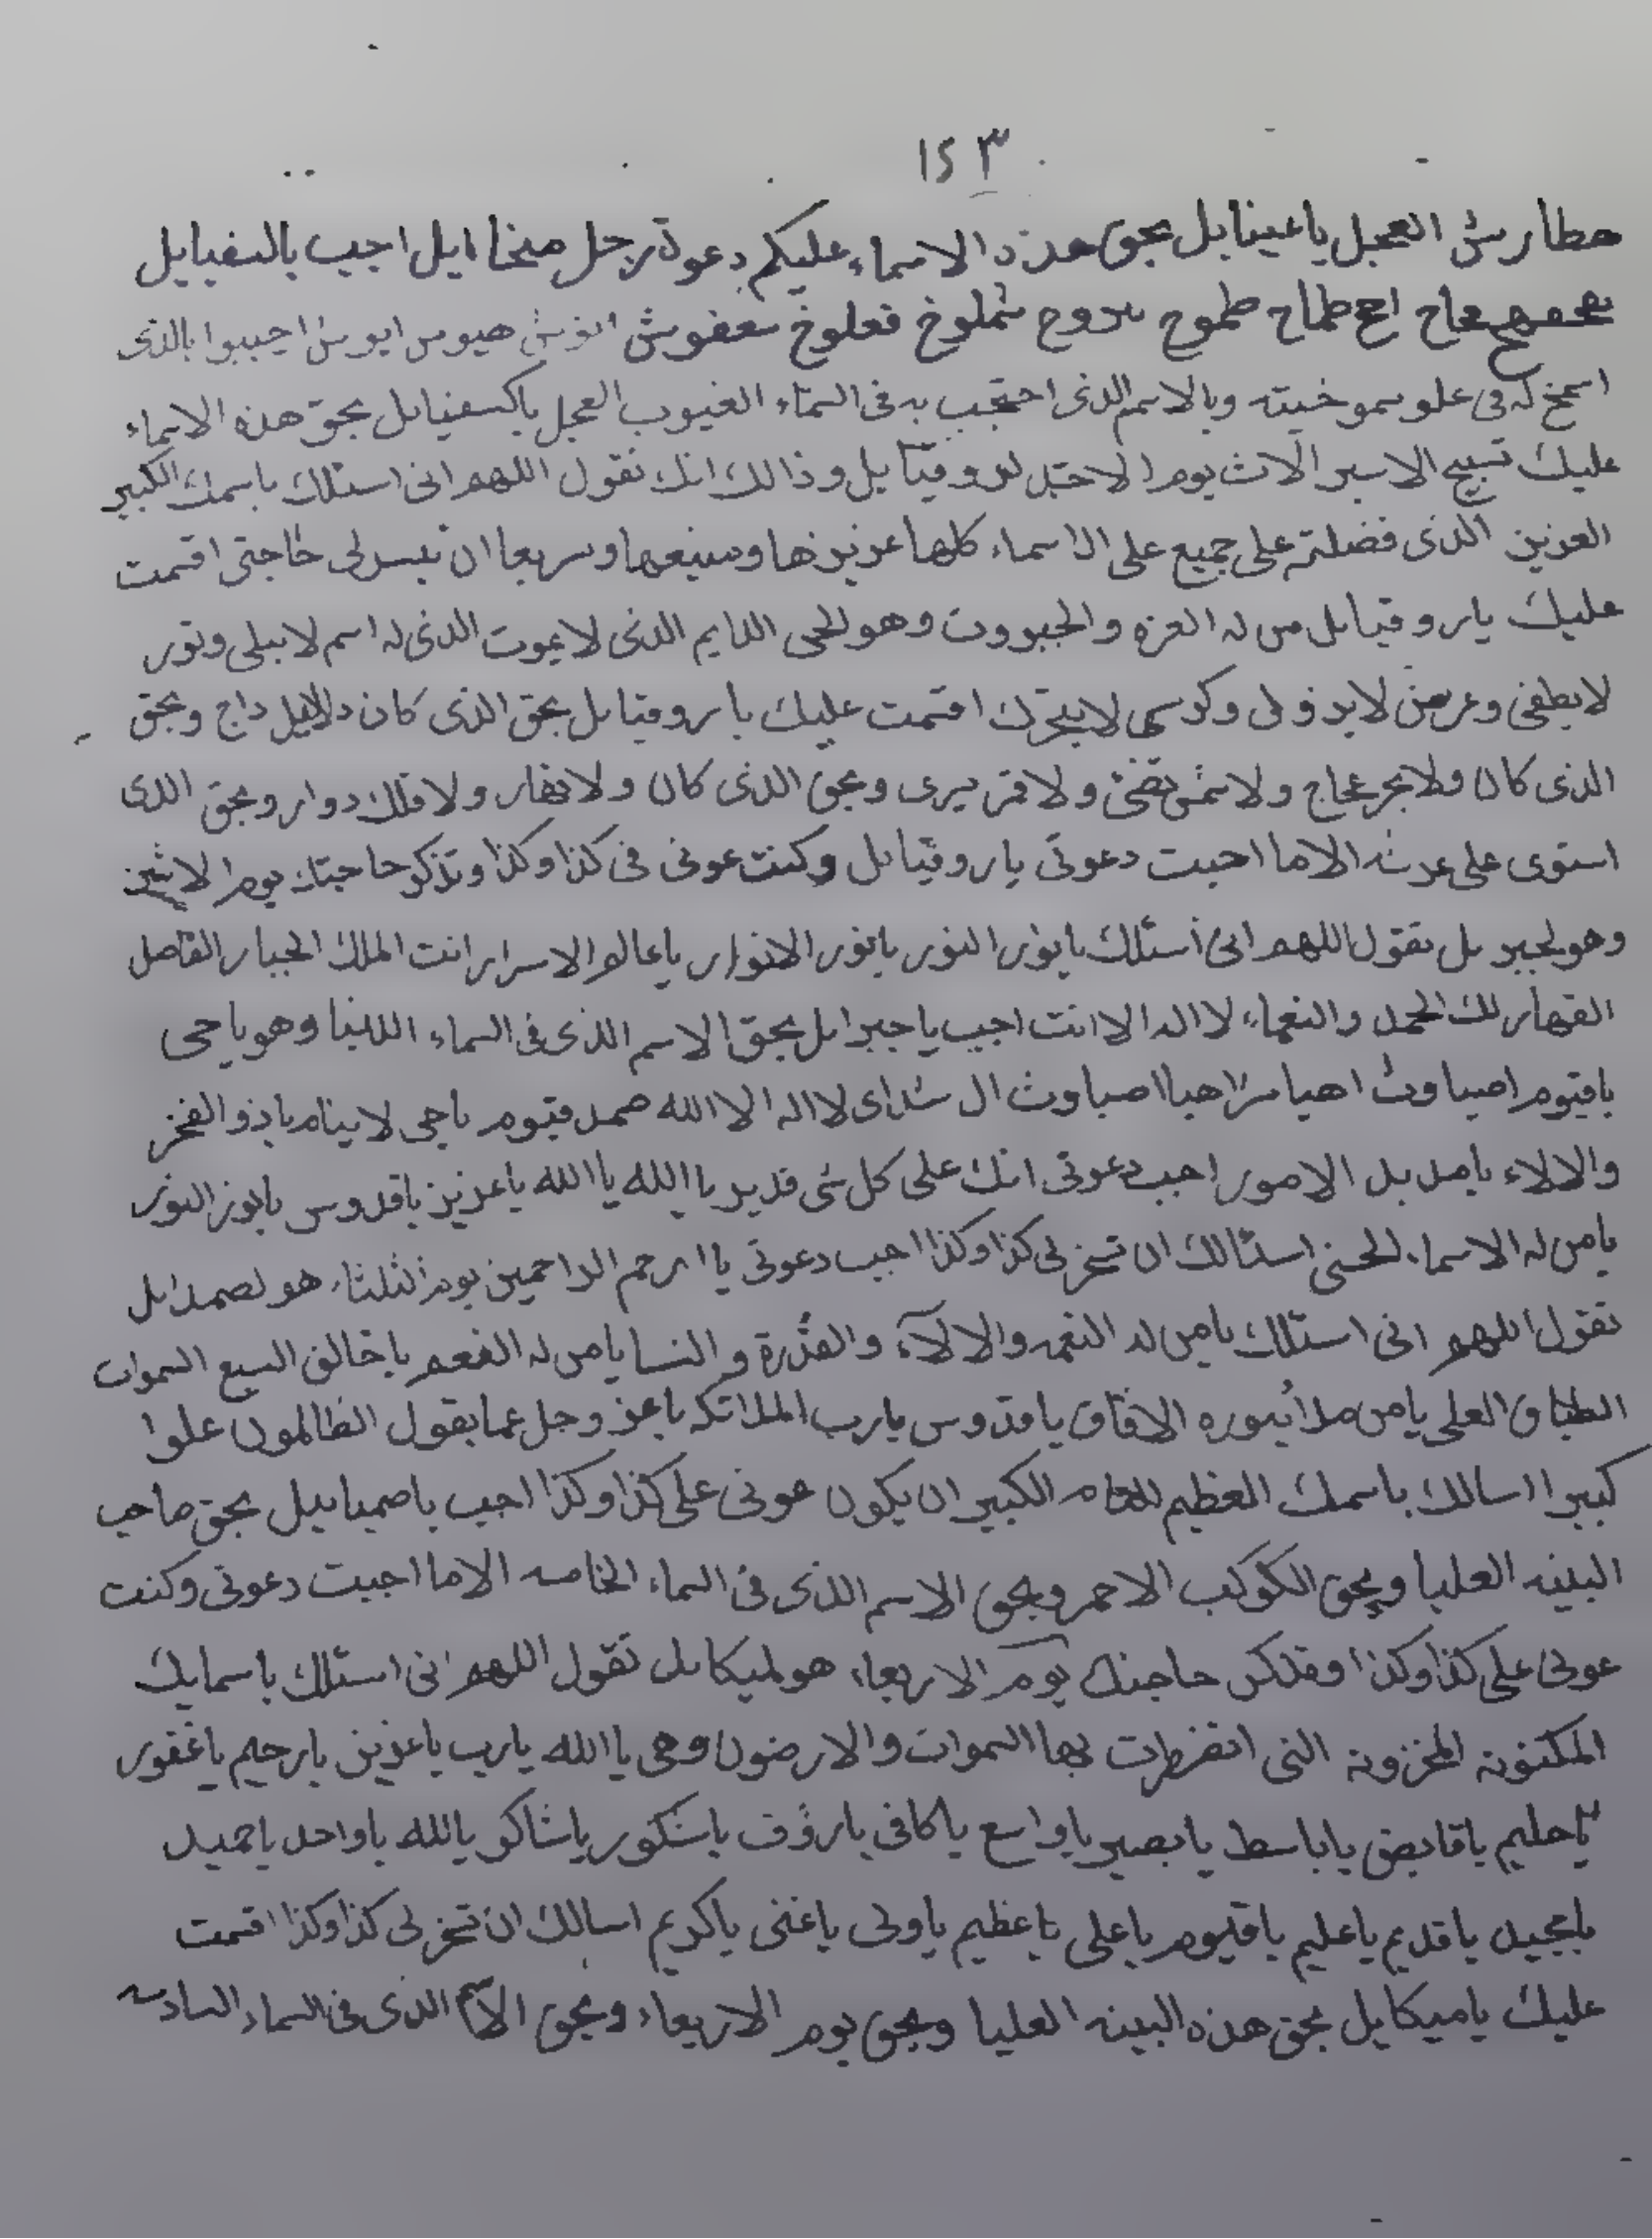 ١٥٣
حطارش العجل ياعينايل بحق هذه الاسماء عليكم دعوة زحل ميخاايل اجب يالسفيايل
اعج طماح طموح شملوخ فعلوخ سعفوش انوش هيوس ايوش اجيبوا بالذى
اسمخ له فى علو سموخيته وبالاسم الذى احتجب به فى السماء الغيوب العجل ياكسفيايل بحق هذه الاسماء
عليك تسبيح يوم الاحد لروقيايل وذالك انك تقول اللهم انى اسئلك باسمك الكبير
العزيز الذى فضلته على جميع على الاسماء كلها عزيزها ومنيعها وسريعا ان تيسر لى حاجتى اقسمت
عليك ياروقيايل من له العزه والجبروت وهو الحى الدايم الذى لا يموت الذى له اسم لا يبلى ونور
لا يطفى وعرش لا يزول وكرسى لا يتحرك اقسمت عليك ياروقيايل بحق الذى كان ولاليل داج وبحق
الذى كان ولا بحر عجاج ولا شمس تضئ ولا قمر يرى وبحق الذى كان ولا نهار ولا فلك دوار وبحق الذى
استوى على عرشه الا ما اجبت دعوتى ياروقيايل وكنت عونى فى كذا وكذا وتذكر حاجتك يوم الاثنين
وهو لجبريل تقول اللهم انى أسئلك يانور النور يانور الانوار ياعالم الاسرار انت الملك الجبار الفاصل
القهار لك الحمد والنعماء لا اله الا انت اجب ياجبرايل بحق الاسم الذى فى السماء الدنيا وهو ياحى
ياقيوم اصباوث اهيا شراهيا اصباوث ال شداى لا اله الا الله صمد قيوم ياحى لا ينام ياذو الفخر
والالاء يامدبر الامور اجب دعوتى انك على كل شى قدير يا الله يا الله ياعزيز ياقدوس يانور النور
يامن له الاسماء الحسنى اسئالك ان تسخر لى كذا وكذا اجب دعوتى يا ارحم الراحمين يوم الثلثاء هو لصمدايل
تقول اللهم انى اسئلك يامن له النعمه والالاء والقدرة و يامن له النعم ياخالق السبع السموات
الطباق العلى يامن ملا بنوره الافاق ياقدوس يارب الملائكه ياعز وجل عما يقول الظالمون علوا
كبيرا اسالك باسمك العظيم التام الكبير ان يكون عونى على كذا وكذا اجب ياصميايل بحق صاحب
البنيه العليا وبحق الكوكب الاحمر وبحق الاسم الذى فى السماء الخامسه الا ما اجبت دعوتى وكنت
عونى على كذا وكذا وتذكر حاجتك يوم الاربعاء هو لميكايل تقول اللهم انى اسئلك باسمايك
المكنونه المخزونه التى انفطرت بها السموات والارضون وهى يا الله يارب ياعزيز يارحيم ياغفور
ياحليم ياقابض ياباسط يابصير ياواسع ياكافى يارؤف ياشكور ياشاكر يالله ياواحد ياحميد
يامجيد ياقديم ياعليم ياقيوم ياعلى ياعظيم ياولى ياغنى ياكريم اسالك ان تسخر لى كذا وكذا اقسمت
عليك ياميكايل بحق هذه البنيه العليا وبحق يوم الاربعاء وبحق الاسم الذى فى السماء السادسه